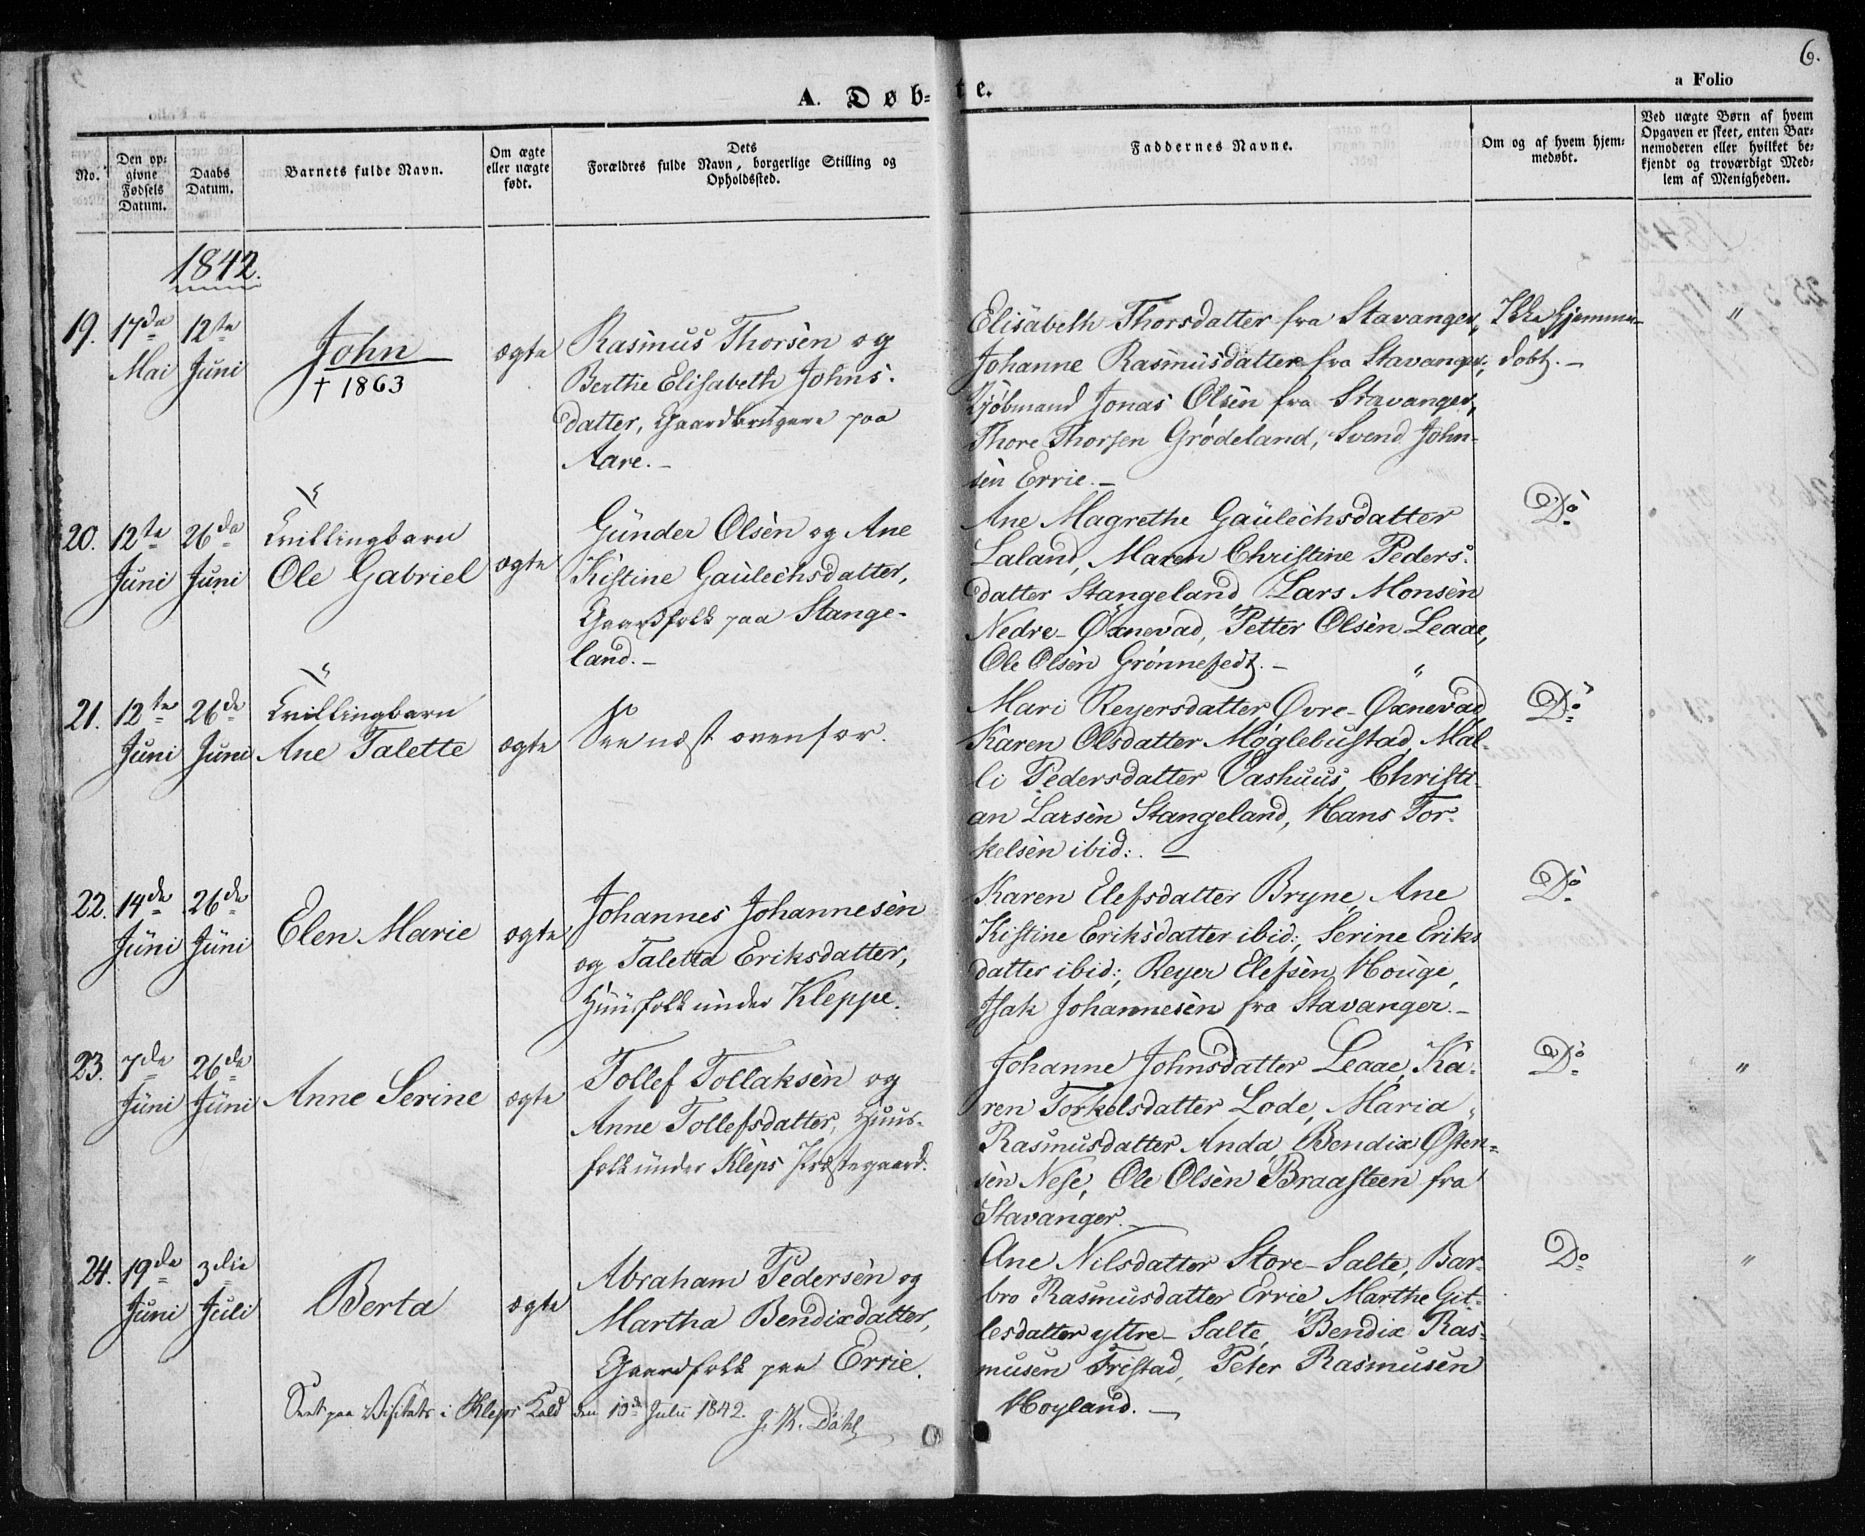 6.
A. Døb=te.
a Folio
No.
Den op=
givne
Fødsels
Datum.
Daabs
Datum.
Barnets fulde Navn.
Om ægte
eller uægte
født.
Dets
Forældres fulde Navn, borgerlige Stilling og
Opholdssted.
Faddernes Navne.
Om og af hvem hjem=
medøbt.
Ved uægte Børn af hvem
Opgaven er skeet, enten Bar=
nemoderen eller hvilket be=
kjendt og troværdigt Med=
lem af Menigheden.
1842.
19.
17de
Mai
12te
Juni
John
† 1863
ægte
Rasmus Thorsen og
Berthe Elisabeth Johns-
datter, Gaardbrugere paa
Aare.-
Elisabeth Thorsdatter fra Stavanger,
Johanne Rasmusdatter fra Stavanger,
Kjöbmand Jonas Olsen fra Stavanger,
Thore Thorsen Grødeland, Svend John-
sen Errie.-
Ikke hjemme-
dobt.-
"
20.
12te
Juni
26de
Juni
Tvillingbarn
Ole Gabriel
ægte
Gunder Olsen og Ane
Kistine Gaulechsdatter,
Gaardfolk paa Stange-
land.-
Ane Magrethe Gaulechsdatter
Laland, Maren Christine Peders-
datter Stangeland, Lars Monsen
Nedre-Øxnevad, Petter Olsen Leaae,
Ole Olsen Grönnefedt.-
Do
21.
12te
Juni
26de
Juni
Tvillingbarn
Ane Talette
ægte
See næst ovenfor.
Mari Reyersdatter Øvre-Øxnevad
Karen Olsdatter Møglebustad, Mal-
li Pedersdatter Vashuus, Christi-
an Larsen Stangeland, Hans Tor-
kelsen ibid:.-
Do
22.
14de
Juni
26de
Juni
Elen Marie
ægte
Johannes Johannesen
og Taletta Eriksdatter,
Huusfolk under Kleppe.
Karen Elefsdatter Bryne, Ane
Kistine Eriksdatter ibid:, Serine Eriks
datter ibid:, Reyer Elefsen Houge,
Isak Johannesen fra Stavanger.-
Do
23.
7de
Juni
26de
Juni
Anne Serine
ægte
Tollef Tollaksen og
Anne Tollefsdatter, Huus-
folk under Kleps Præstegaard.
Johanne Johnsdatter Leaae, Ka-
ren Torkelsdatter Lode, Maria
Rasmusdatter Anda, Bendix Østen-
sen Nese, Ole Olsen Braasteen fra
Stavanger.-
Do
"
24.
19de
Juni
3die
Juli
Berta
ægte
Abraham Pedersen og
Martha Bendixdatter,
Gaardfolk paa Errie.
Ane Nilsdatter Store-Salte, Bar-
bro Rasmusdatter Errie, Marthe Git-
lesdatter yttre-Salte, Bendix Ras-
musen Fristad, Peter Rasmusen
Hoyland.-
Do
"
Seet paa Visitats i Kleps Kald den 10de Julii 1842. J. K. Dahl